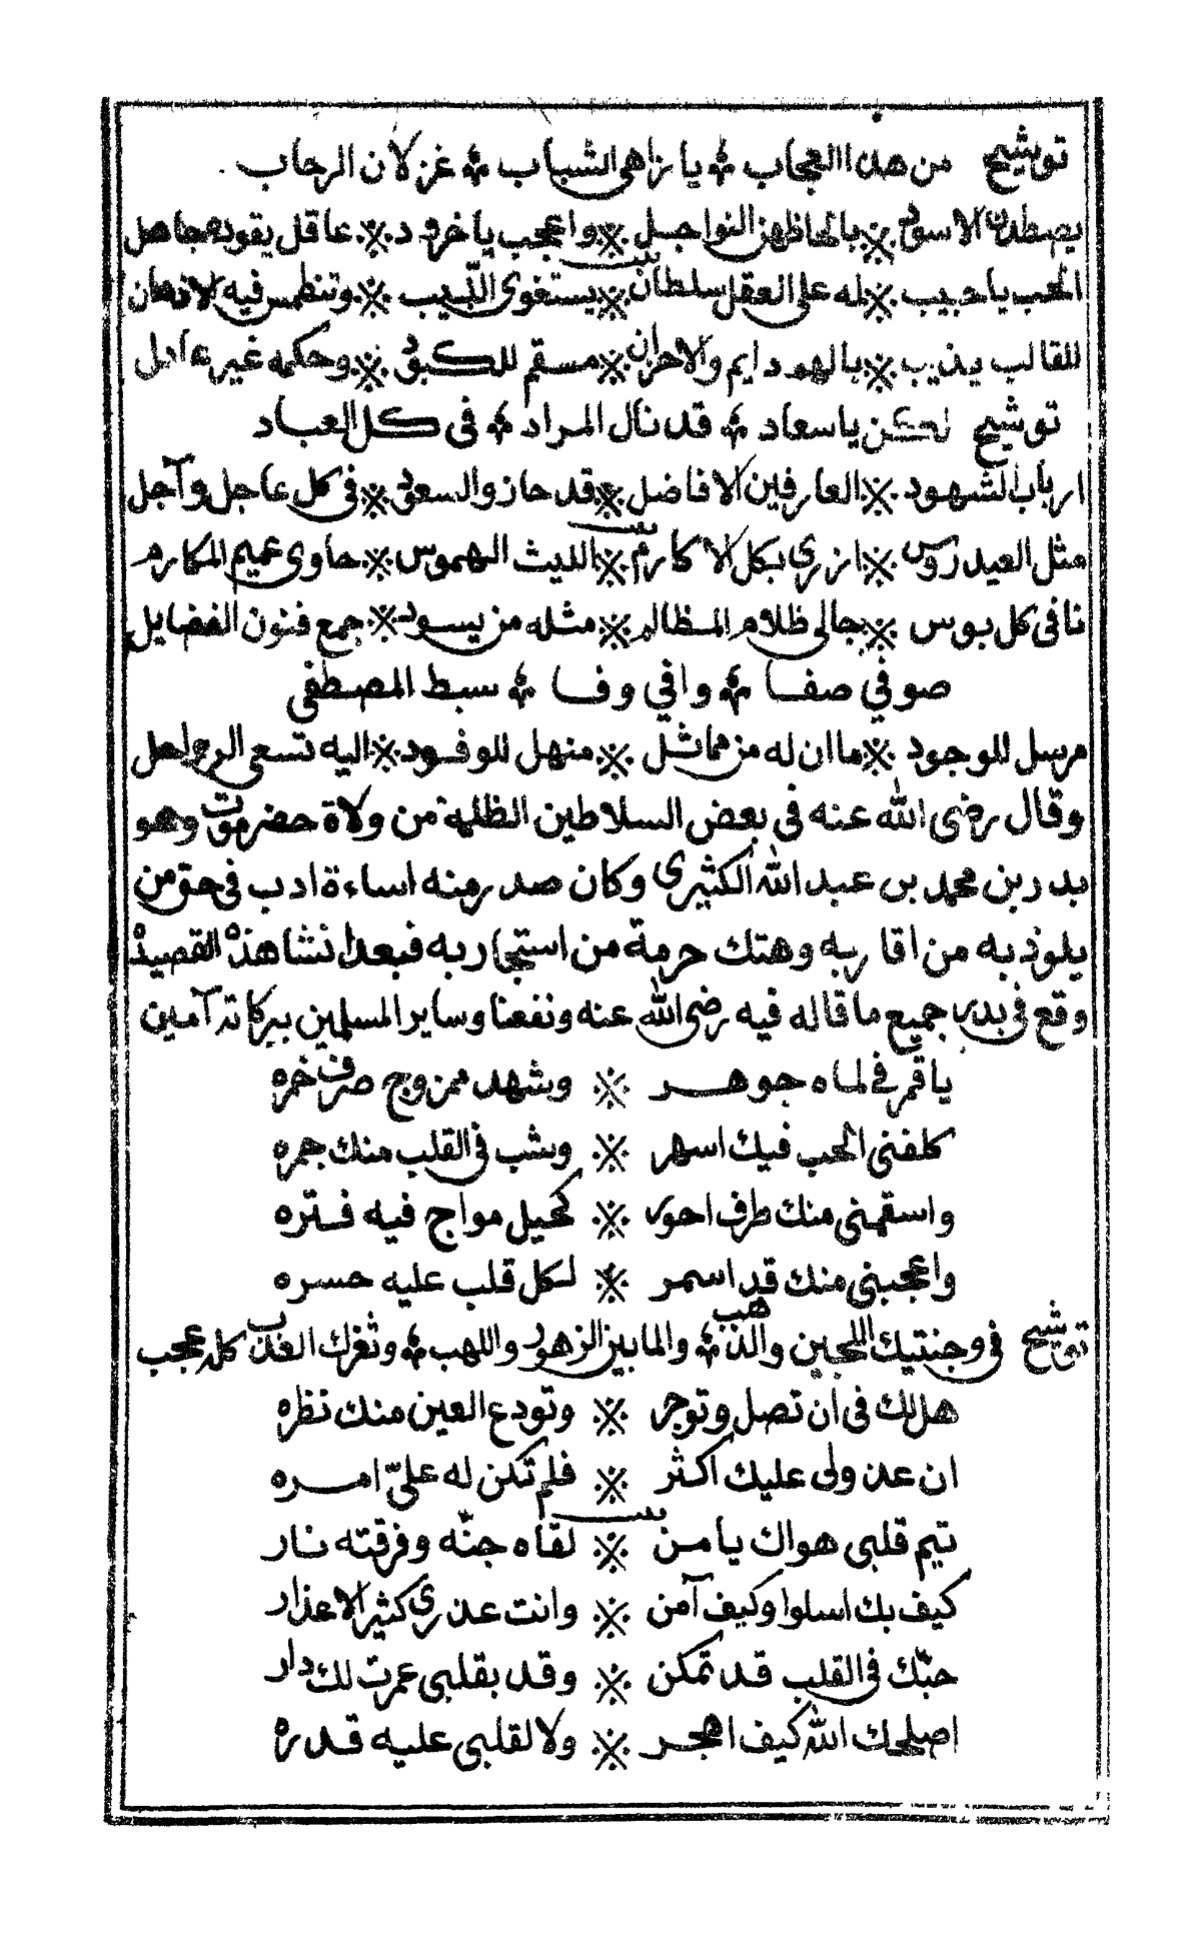 توشيح من هذا العجاب ۞ يا زاهي الشباب ۞ غزلان الرحاب
يصطدن الاسود ※ بالحاظهن النواجل ※ واعجب يا خرد ※ عاقل يقوده جاهل
الحب يا حبيب ※ له على العقل سلطان ※ يستغوى اللّبيب ※ وتنطمس فيه الاذهان
للقالب يذيب ※ بالهم دايم والاحزان ※ مسقم للكبود ※ وحكمه غير عادل
توشيح لكن يا سعاد ۞ قد نال المراد ۞ فى كل العباد
ارباب الشهود ※ العارفين الافاضل ※ قد حاز والسعود ※ فى كل عاجل وآجل
مثل العيدروس ※ ازري بكل الاكارم ※ الليث الهموس ※ حاوى عميم المكارم
نافى كل بوس ※ جالى ظلام المظالم ※ مثله من يسود ※ جمع فنون الفضايل
صوفي صفا ۞ وافي وفا ۞ سبط المصطفى
مرسل للوجود ※ ما ان له من مماثل ※ منهل للوفود ※ اليه تسعى الرواحل
وقال رضى الله عنه فى بعض السلاطين الظلمة من ولاة حضرموت وهو
بدر بن محمد بن عبد الله الكثيري وكان صدر منه اساءة ادب فى حق من
يلوذ به من اقاربه وهتك حرمة من استجار به فبعد انشا هذه القصيده
وقع فى بدر جميع ما قاله فيه رضى الله عنه ونفعنا وساير المسلمين ببركاته آمين
يا قمر فى لماه جوهر ※ وشهد ممزوج صرف خمره
كلفنى الحب فيك اسهر ※ وشب فى القلب منك جمره
واسقمنى منك طرف احور ※ كحيل مواج فيه فتره
واعجبنى منك قد اسمر ※ لكل قلب عليه حسره
توشيح فى وجنتيك اللجين والذهب ۞ والما بين الزهور واللهب ۞ وثغرك العذب كله عجب
هل لك فى ان تصل وتوجر ※ وتودع العين منك نظره
ان عذولى عليك اكثر ※ فلم تكن له علىّ امره
تيم قلبى هواك يا من ※ لقاه جنّه وفرقته نار
كيف بك اسلوا وكيف آمن ※ وانت عذري كثير الاعذار
حبّك فى القلب قد تمكن ※ وقد بقلبى عمرت لك دار
اصلحك الله كيف اهجر ※ ولا لقلبى عليه قدره